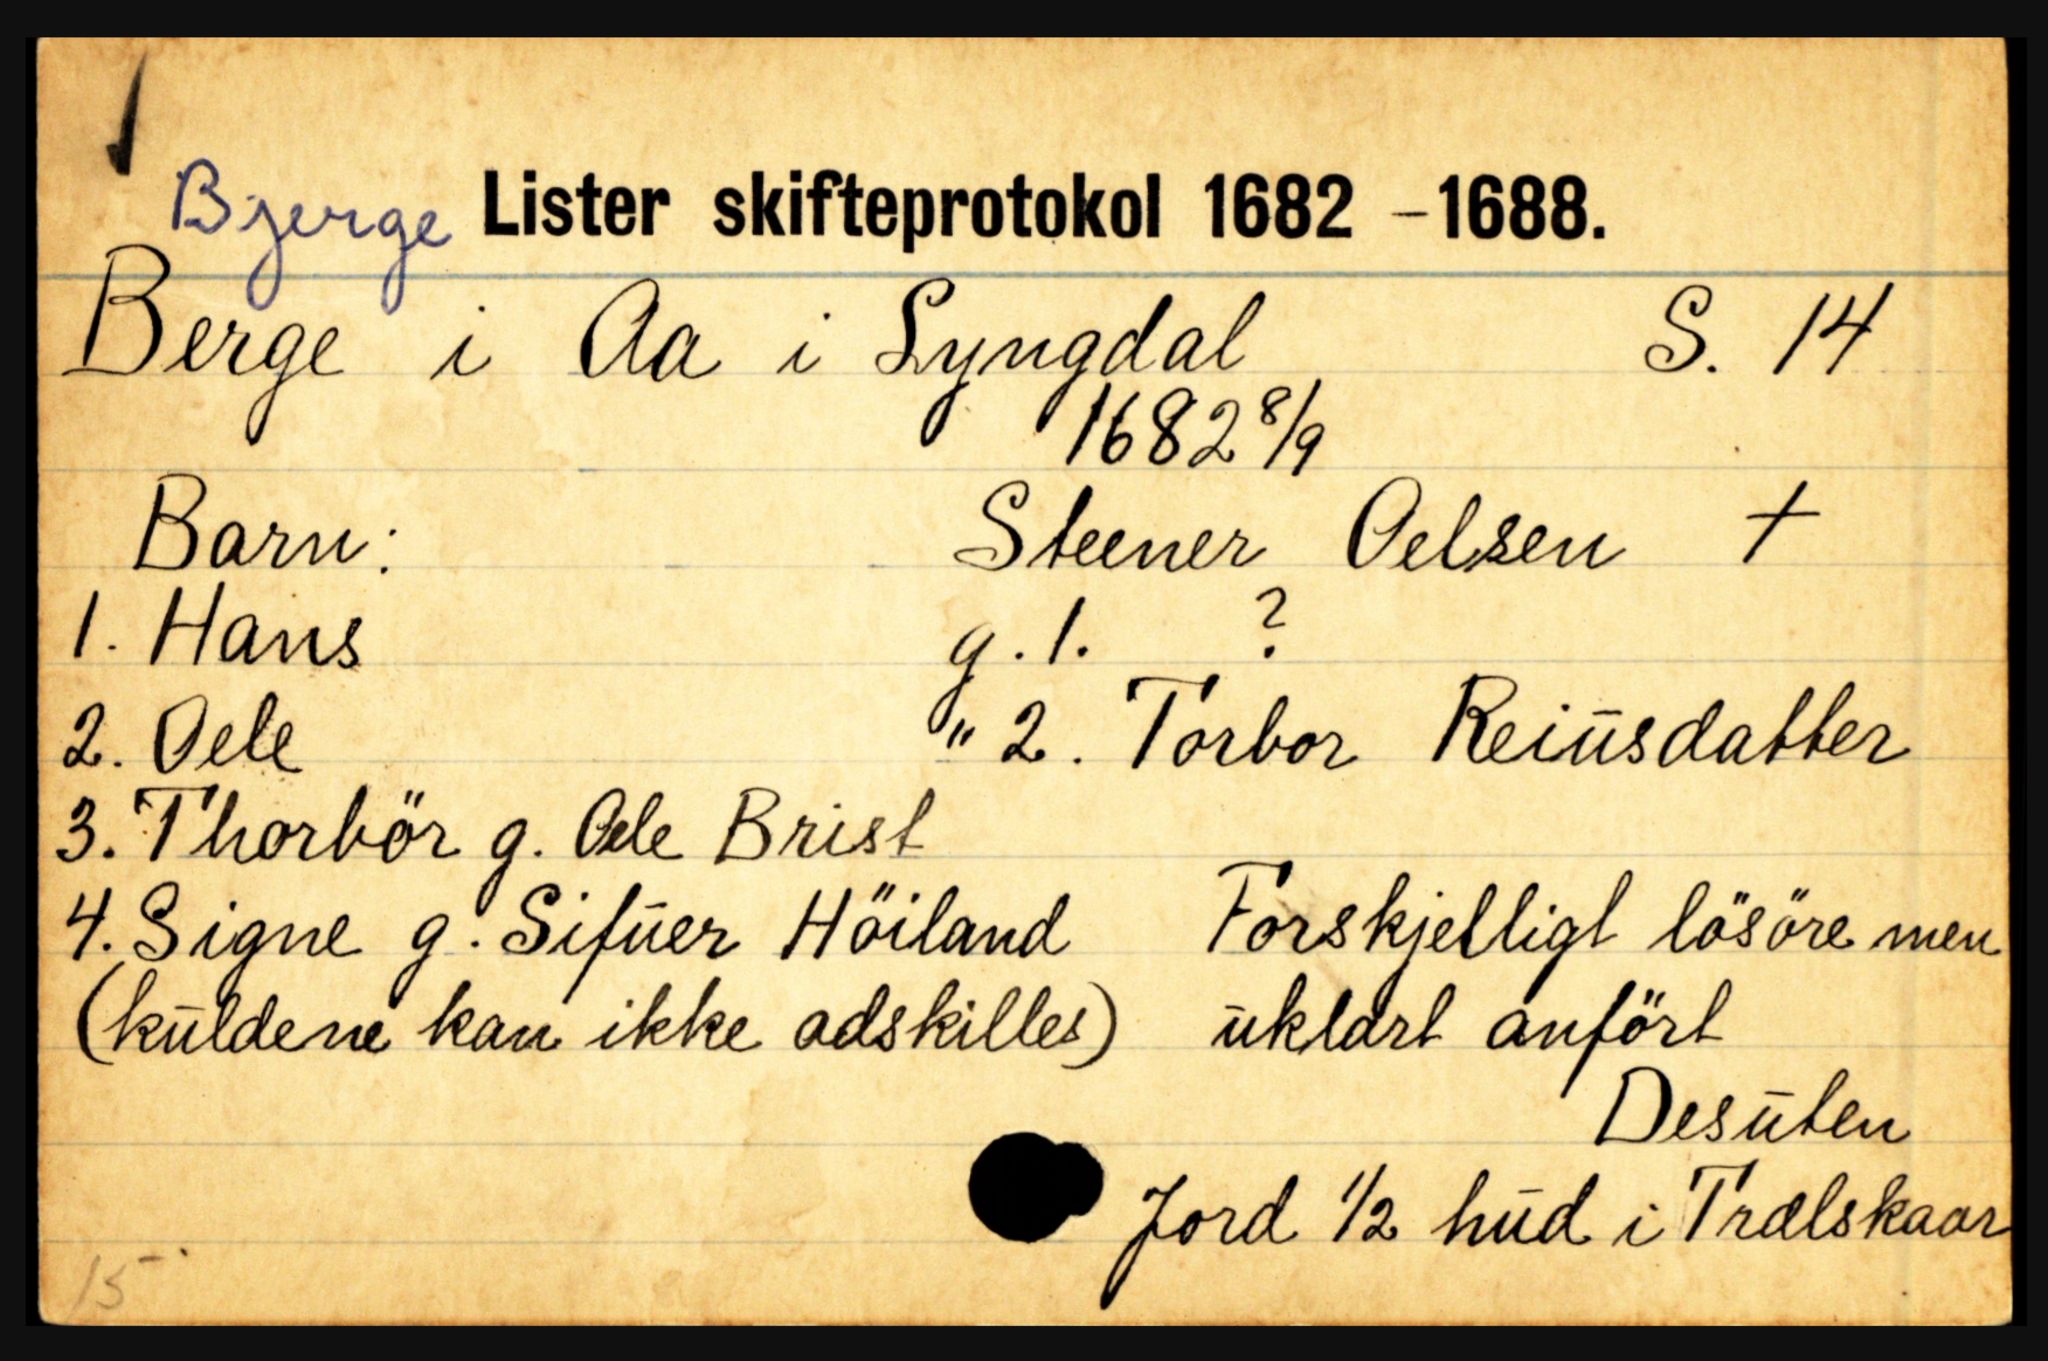 Bjerge Lister skifteprotokol 1682 – 1688.
Berge i Aa i Lyngdal S. 14
1682 8/9
Barn: Steener Oelsen +
1. Hans g. 1. ?
2. Oele " 2. Torbor Reinsdatter
3. Thorbör g. Oele Brist
4. Signe g. Sifuer Höiland Forskjelligt lösöre men
(kuldene kan ikke adskilles) uklart anfört
Desuten
Jord 1/2 hud i Trælskaar
15